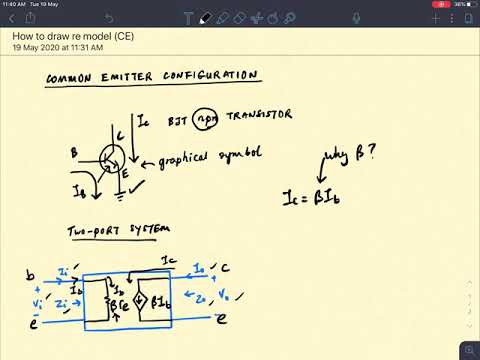 11:40 AM Tue 19 May
36%
How to draw re model (CE)
19 May 2020 at 11:31 AM
COMMON EMITTER CONFIGURATION
C
Ic
BJT npn TRANSISTOR
B
E
graphical symbol
IB
why β?
Ic = βIb
TWO-PORT SYSTEM
Ic
b Ii Io c
+ Ib Ib +
Vi Zi βre βIb Zo Vo
- -
e e